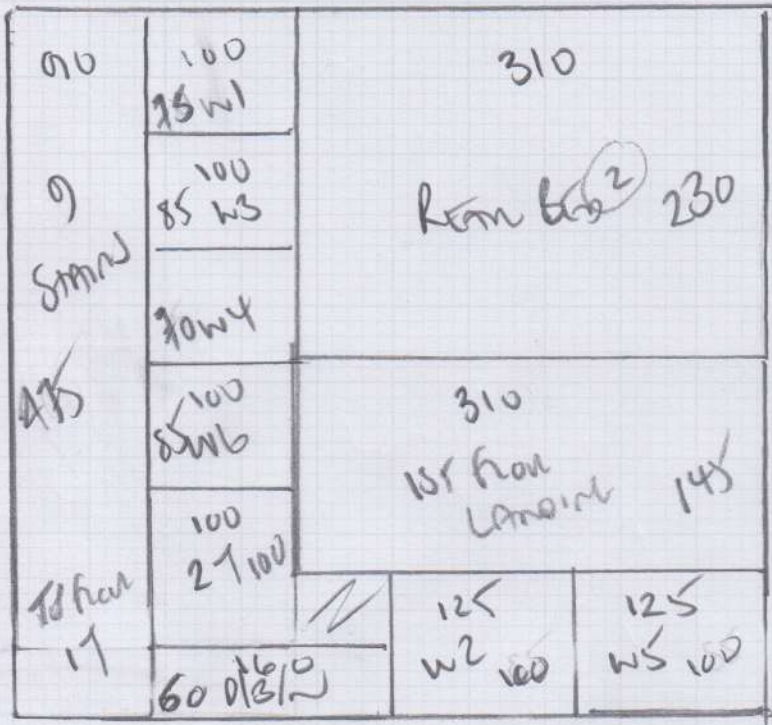 90
9
STAIRS
475
1st Floor
1T
100
75 W1
100
85 W3
70 W4
100
85 W6
100
2T 100
160
60 D/B/W
310
REAR BED 2 230
310
1ST FLOOR
LANDING 145
125
W2 100
125
W5 100